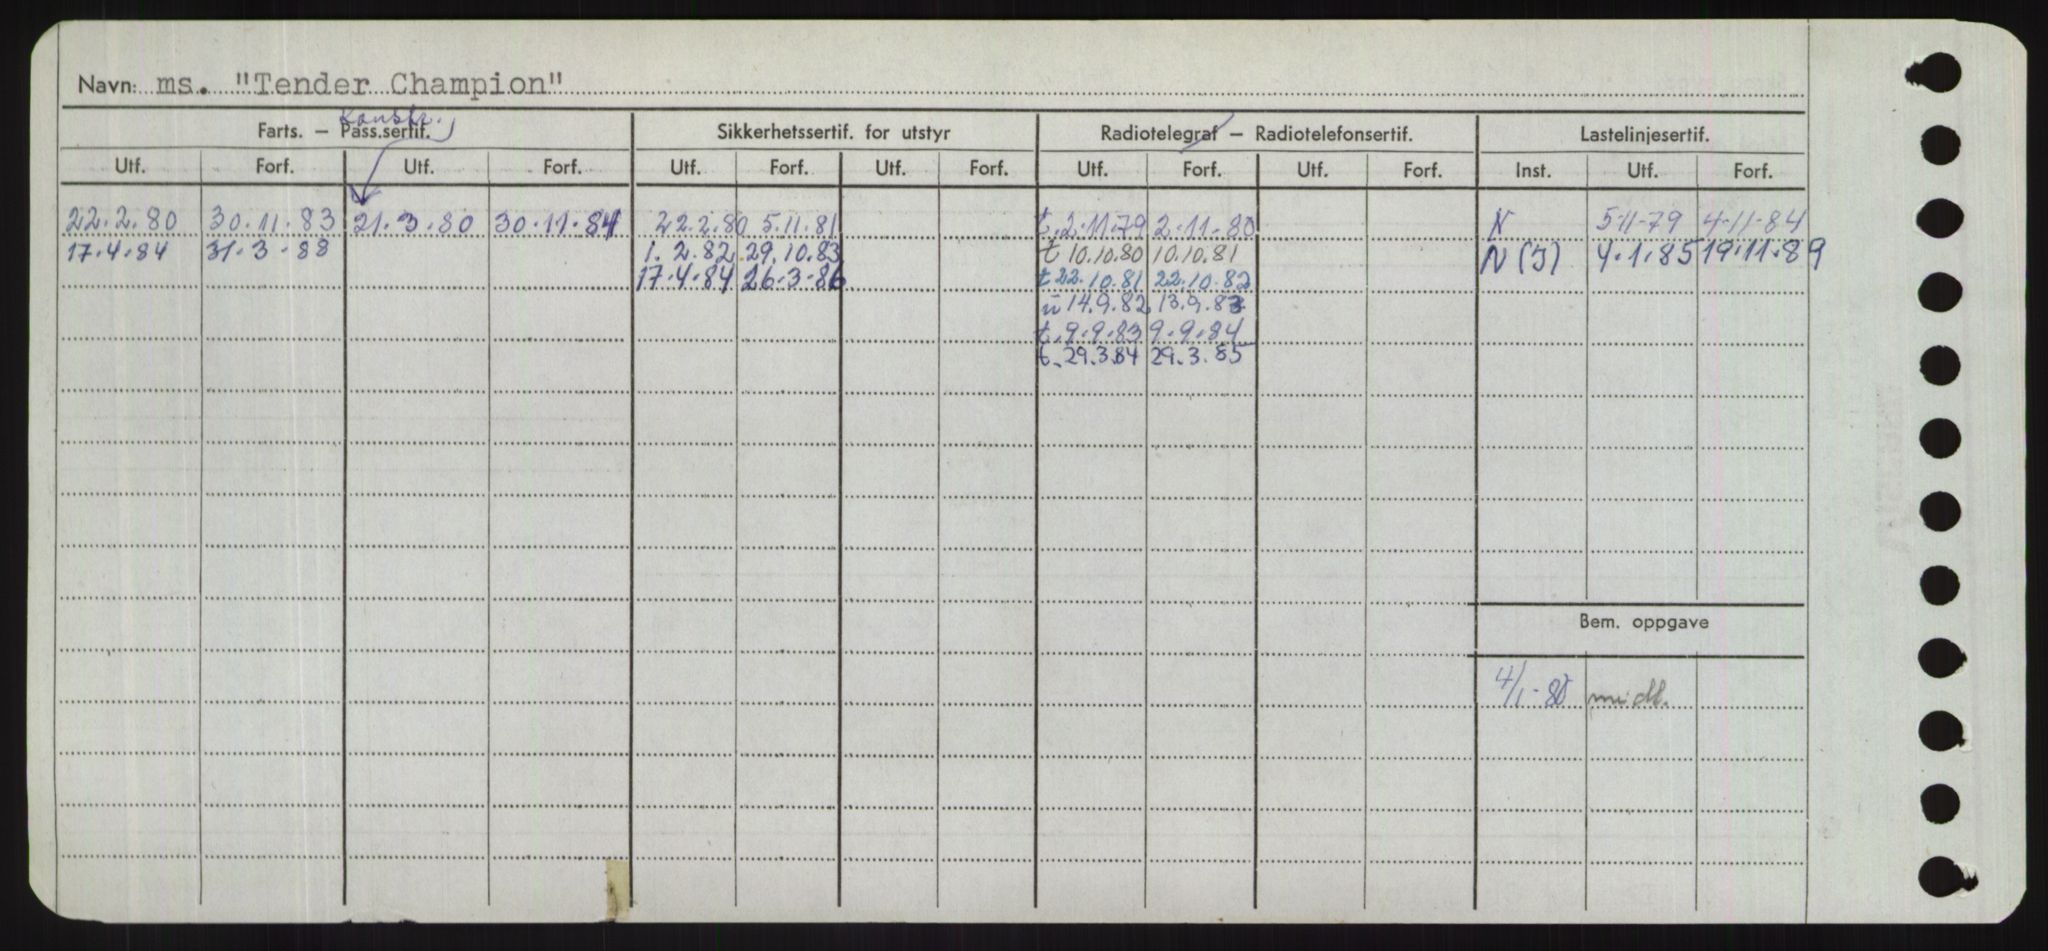 Navn: ms. "Tender Champion"
Konstr.
Farts. – Pass.sertif. Sikkerhetssertif. for utstyr Radiotelegraf – Radiotelefonsertif. Lastelinjesertif.
Utf. Forf. Utf. Forf. Utf. Forf. Utf. Forf. Utf. Forf. Utf. Forf. Inst. Utf. Forf.
22.2.80 30.11.83 21.3.80 30.11.84 22.2.80 5.11.81 t.2.11.79 2.11.80 N 5-11-79 4-11-84
17.4.84 31.3.88 1.2.82 29.10.83 t 10.10.80 10.10.81 N (J) 4.1.85 19.11.89
17.4.84 26.3.86 t 22.10.81 22.10.82
ū 14.9.82 13.9.83
t.9.9.83 9.9.84
t.29.3.84 29.3.85
Bem. oppgave
4/1-80 midl.